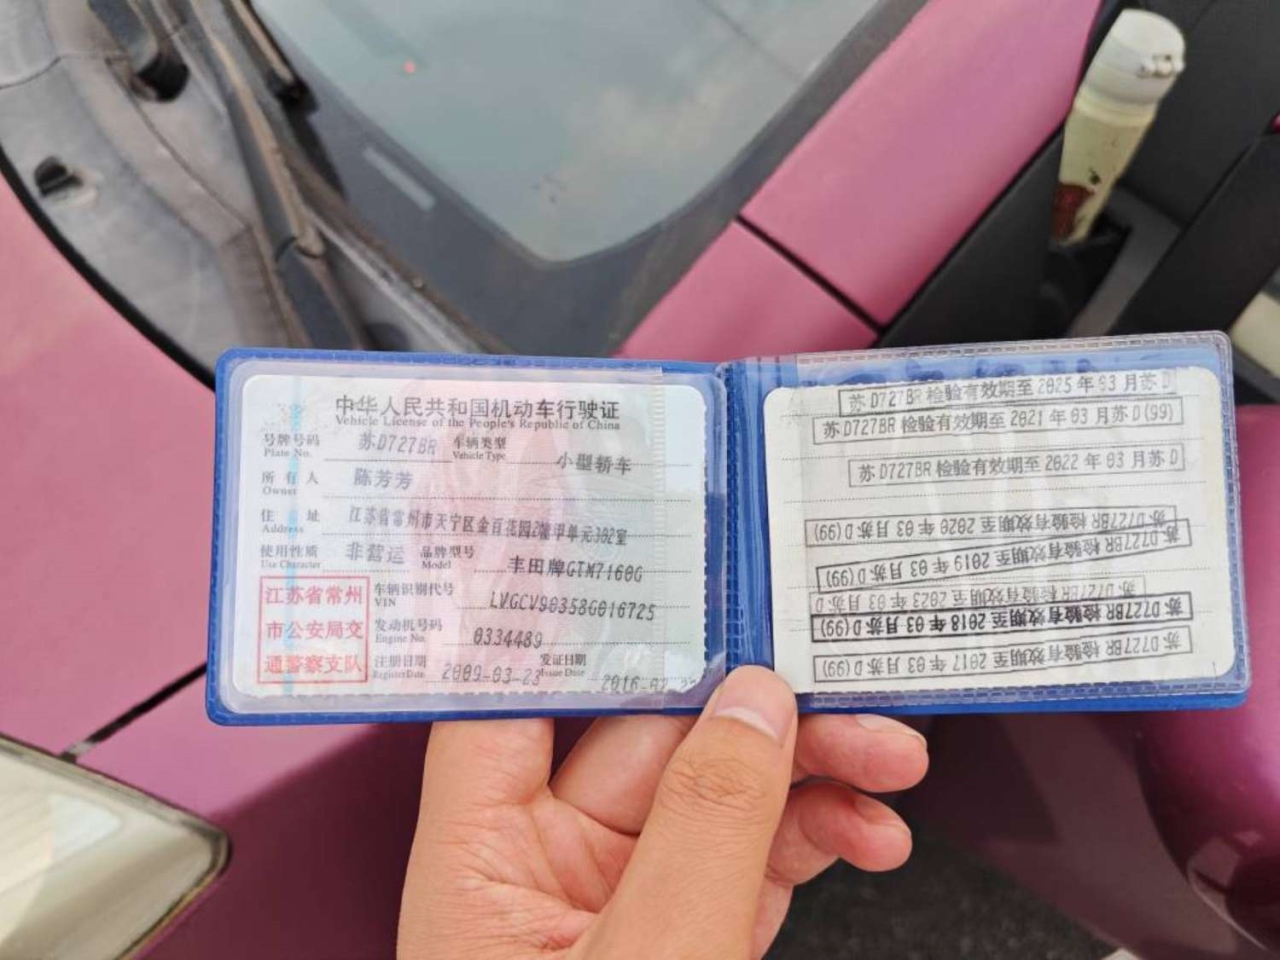 中华人民共和国机动车行驶证
Vehicle License of the People's Republic of China
号牌号码 苏D727BR 车辆类型 小型轿车
Plate No. Vehicle Type
所有人 陈芳芳
Owner
住址 江苏省常州市天宁区金百花园2幢甲单元302室
Address
使用性质 非营运 品牌型号 丰田牌GTM7160G
Use Character Model
江苏省常州
市公安局交
通警察支队
车辆识别代号 LVGCV90358G016725
VIN
发动机号码 0334489
Engine No.
注册日期 2009-03-23 发证日期 2016-02
Register Date Issue Date
苏D727BR 检验有效期至 2025 年 03 月苏D
苏D727BR 检验有效期至 2021 年 03 月苏D(99)
苏D727BR 检验有效期至 2022 年 03 月苏D
苏D727BR 检验有效期至 2020 年 03 月苏D(99)
苏D727BR 检验有效期至 2019 年 03 月苏D(99)
苏D727BR 检验有效期至 2023 年 03 月苏D
苏D727BR 检验有效期至 2018 年 03 月苏D(99)
苏D727BR 检验有效期至 2017 年 03 月苏D(99)